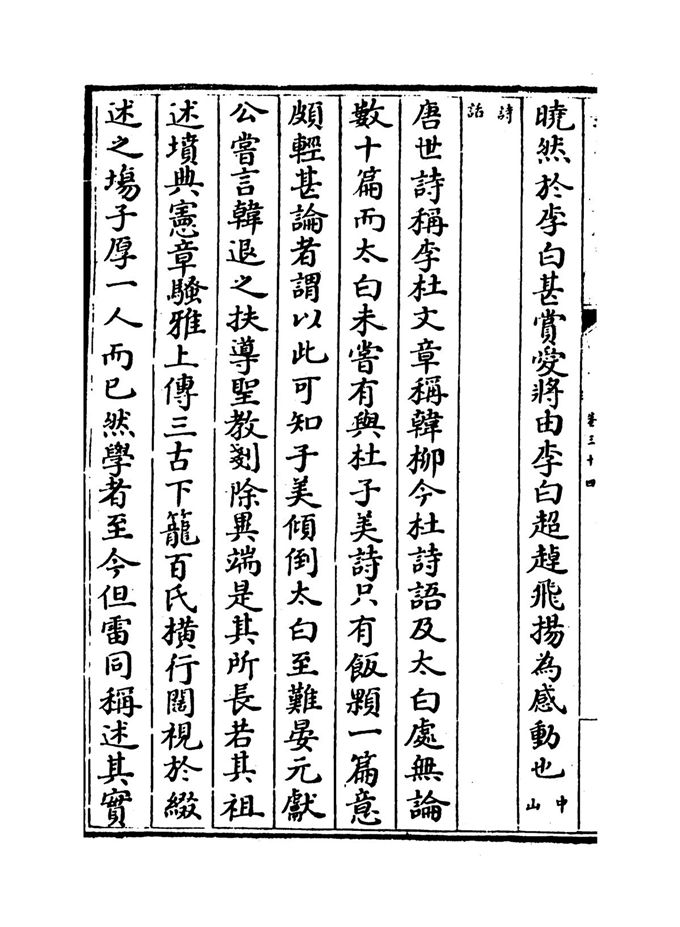 卷三十四
曉然於李白甚賞愛將由李白超趠飛揚為感動也中山
詩話
唐世詩稱李杜文章稱韓柳今杜詩語及太白處無論
數十篇而太白未嘗有與杜子美詩只有飯顆一篇意
頗輕甚論者謂以此可知子美傾倒太白至難晏元獻
公嘗言韓退之扶導聖教剗除異端是其所長若其祖
述墳典憲章騷雅上傳三古下籠百氏橫行闊視於綴
述之塲子厚一人而已然學者至今但雷同稱述其實